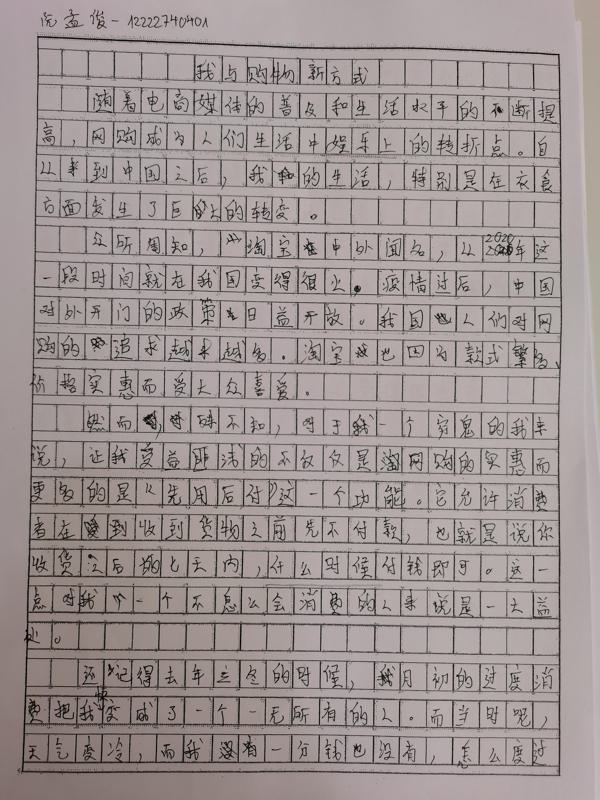 阮孟俊-12222740401
我与购物新方式
随着电商媒体的普及和生活水平的不断提
高，网购成为人们生活中娱乐上的转折点。自
从来到中国之后，我的生活，特别是在衣食
方面发生了巨大的转变。
众所周知，淘宝中外闻名，从2020年这
一段时间就在我国变得很火。疫情过后，中国
对外开门的政策日益开放。我国人们对网
购的追求越来越多。淘宝也因为款式繁多、
价格实惠而受大众喜爱。
然而，殊不知，对于我一个穷鬼的我来
说，让我受益匪浅的不仅仅是淘网购的实惠而
更多的是《先用后付》这一个功能。它允许消费
者在收到货物之前先不付款，也就是说你
收货之后的七天内，什么时候付钱即可。这一
点对我个一个不怎么会消费的人来说是一大益
处。
还记得去年立冬的时候，我月初的过度消
费把我变成了一个一无所有的人。而当时呢，
天气变冷，而我没有一分钱也没有，怎么度过